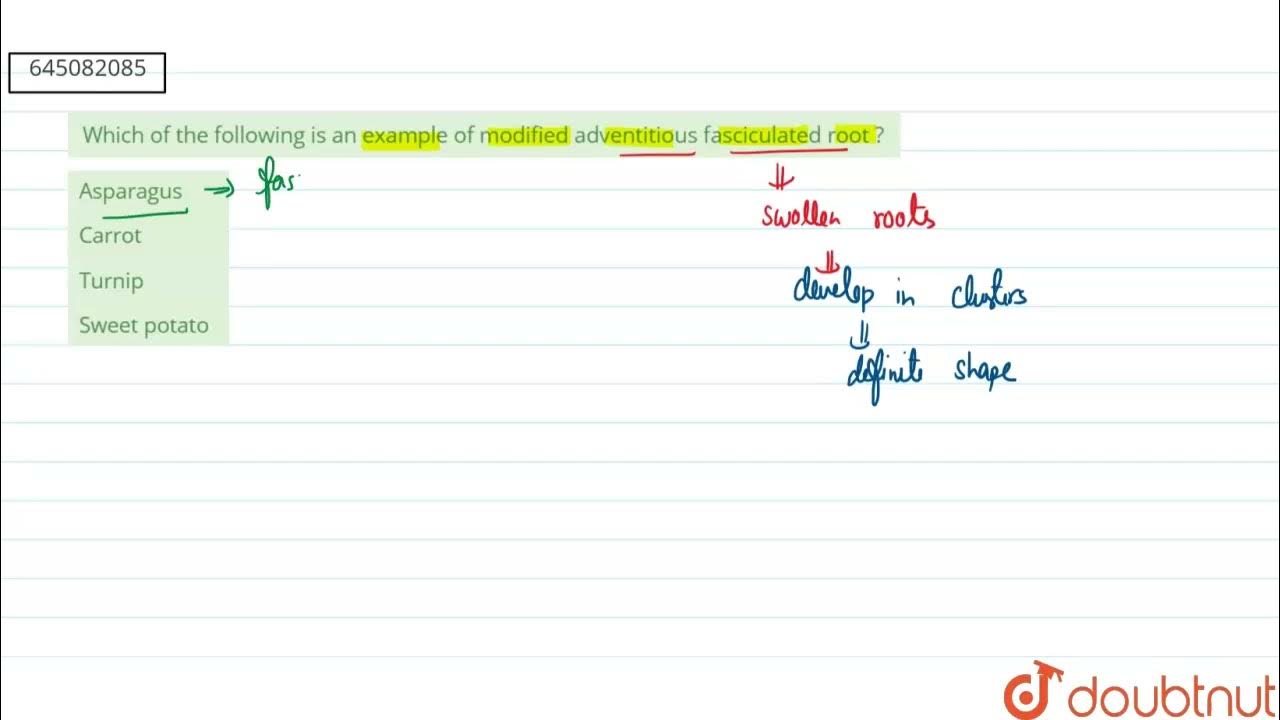 645082085
Which of the following is an example of modified adventitious fasciculated root ?
Asparagus → fas
Carrot
Turnip
Sweet potato
⇓
swollen roots
⇓
develop in clusters
⇓
definite shape
doubtnut